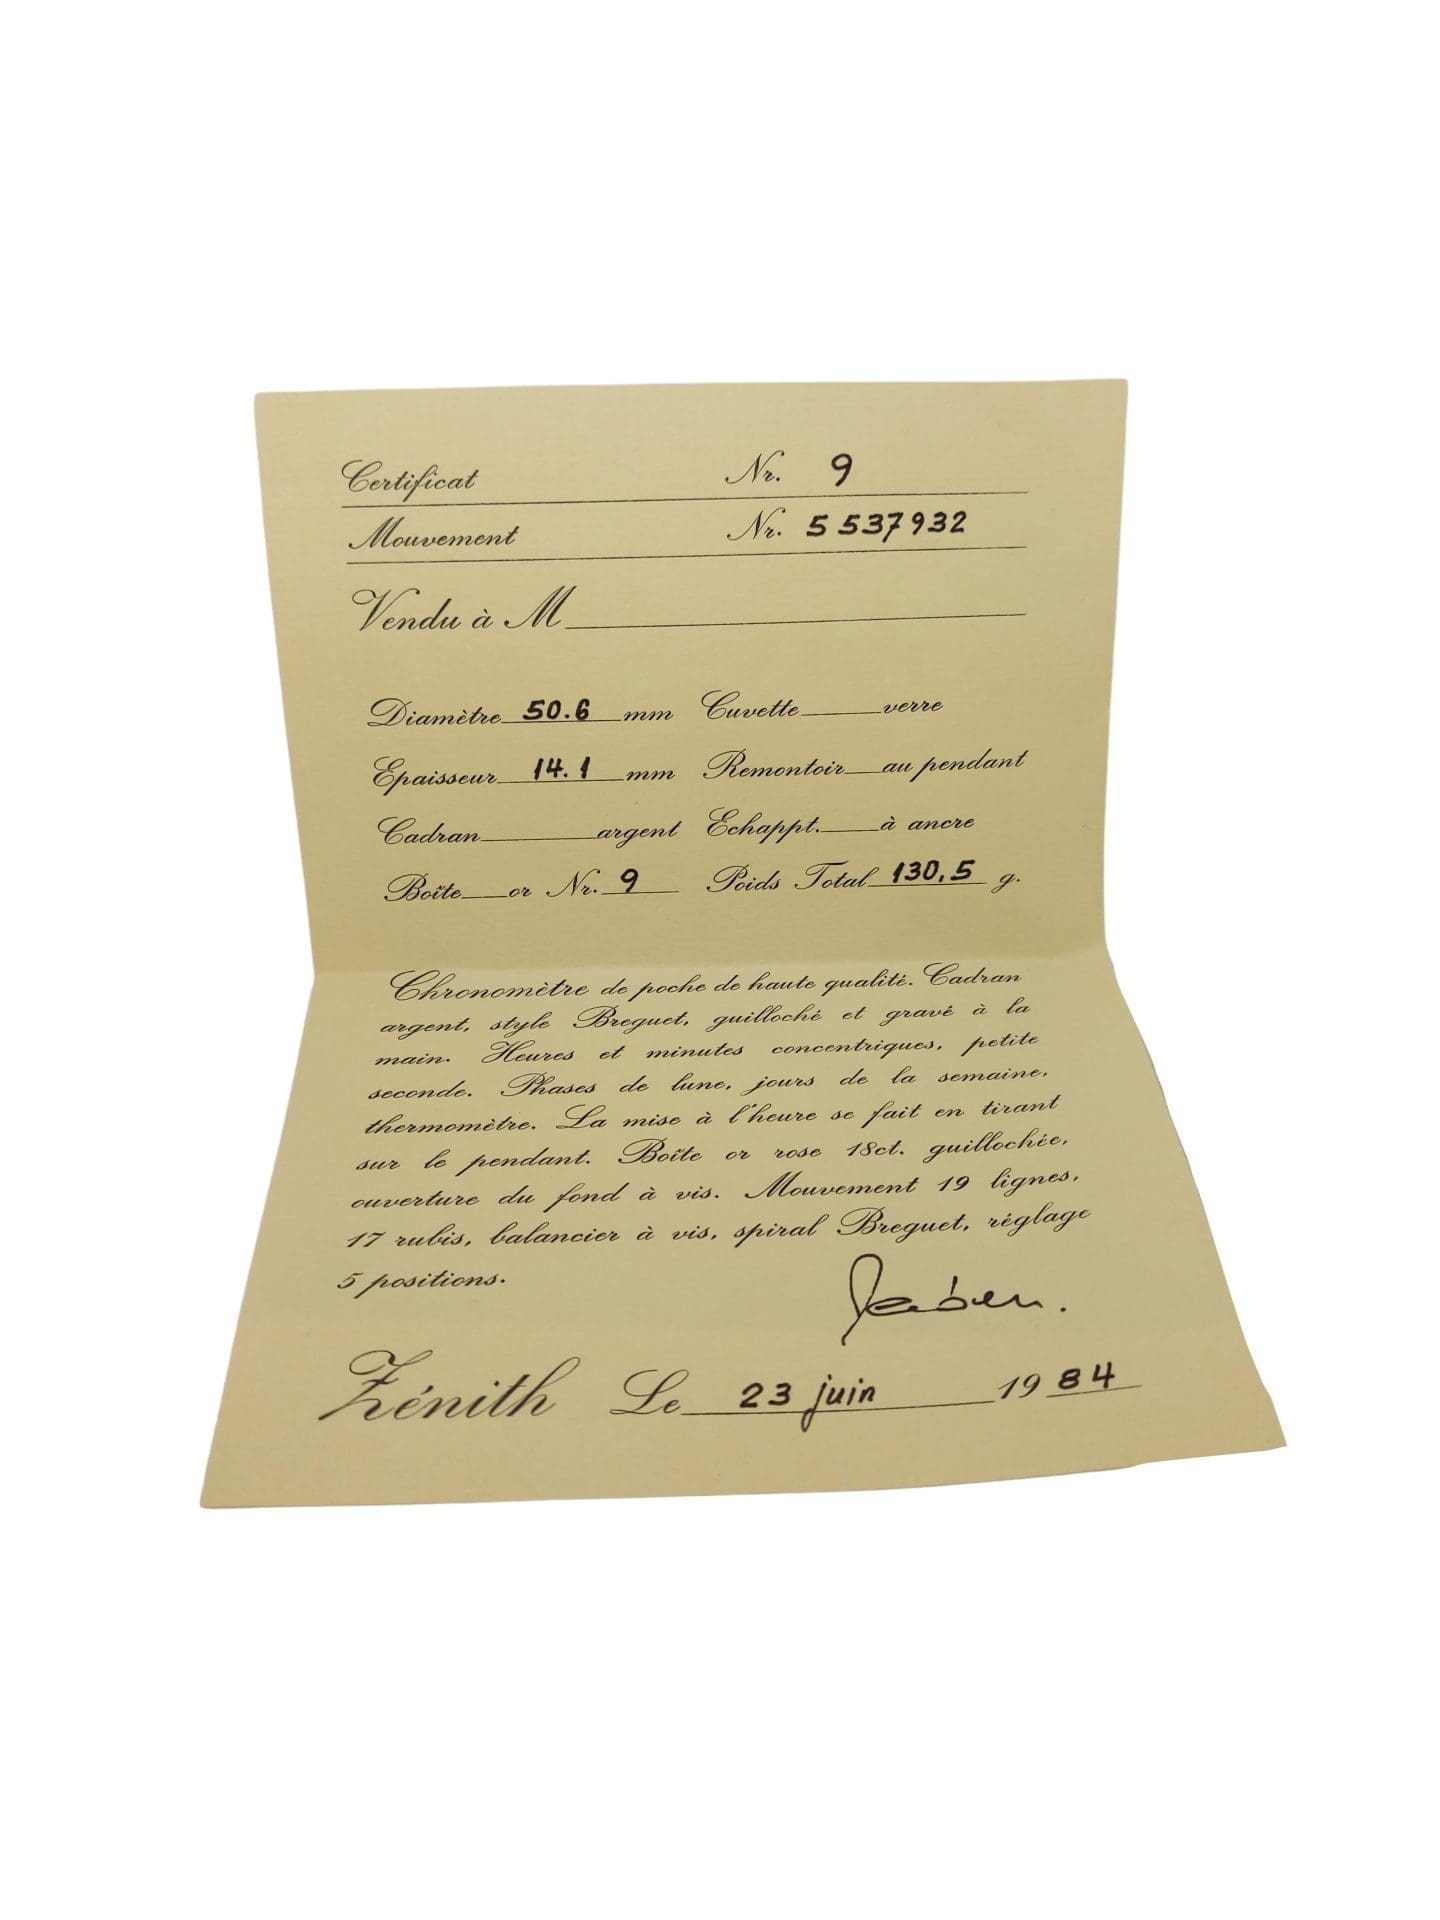 Certificat Nr. 9
Mouvement Nr. 5 537932
Vendu à M
Diamètre 50.6 mm Cuvette verre
Epaisseur 14.1 mm Remontoir au pendant
Cadran argent Echappt. à ancre
Boîte or Nr. 9 Poids Total 130,5 g.
Chronomètre de poche de haute qualité. Cadran
argent, style Breguet, guilloché et gravé à la
main. Heures et minutes concentriques, petite
seconde. Phases de lune, jours de la semaine,
thermomètre. La mise à l'heure se fait en tirant
sur le pendant. Boîte or rose 18ct. guillochée,
ouverture du fond à vis. Mouvement 19 lignes,
17 rubis, balancier à vis, spiral Breguet, réglage
5 positions.
Zénith Le 23 juin 19 84